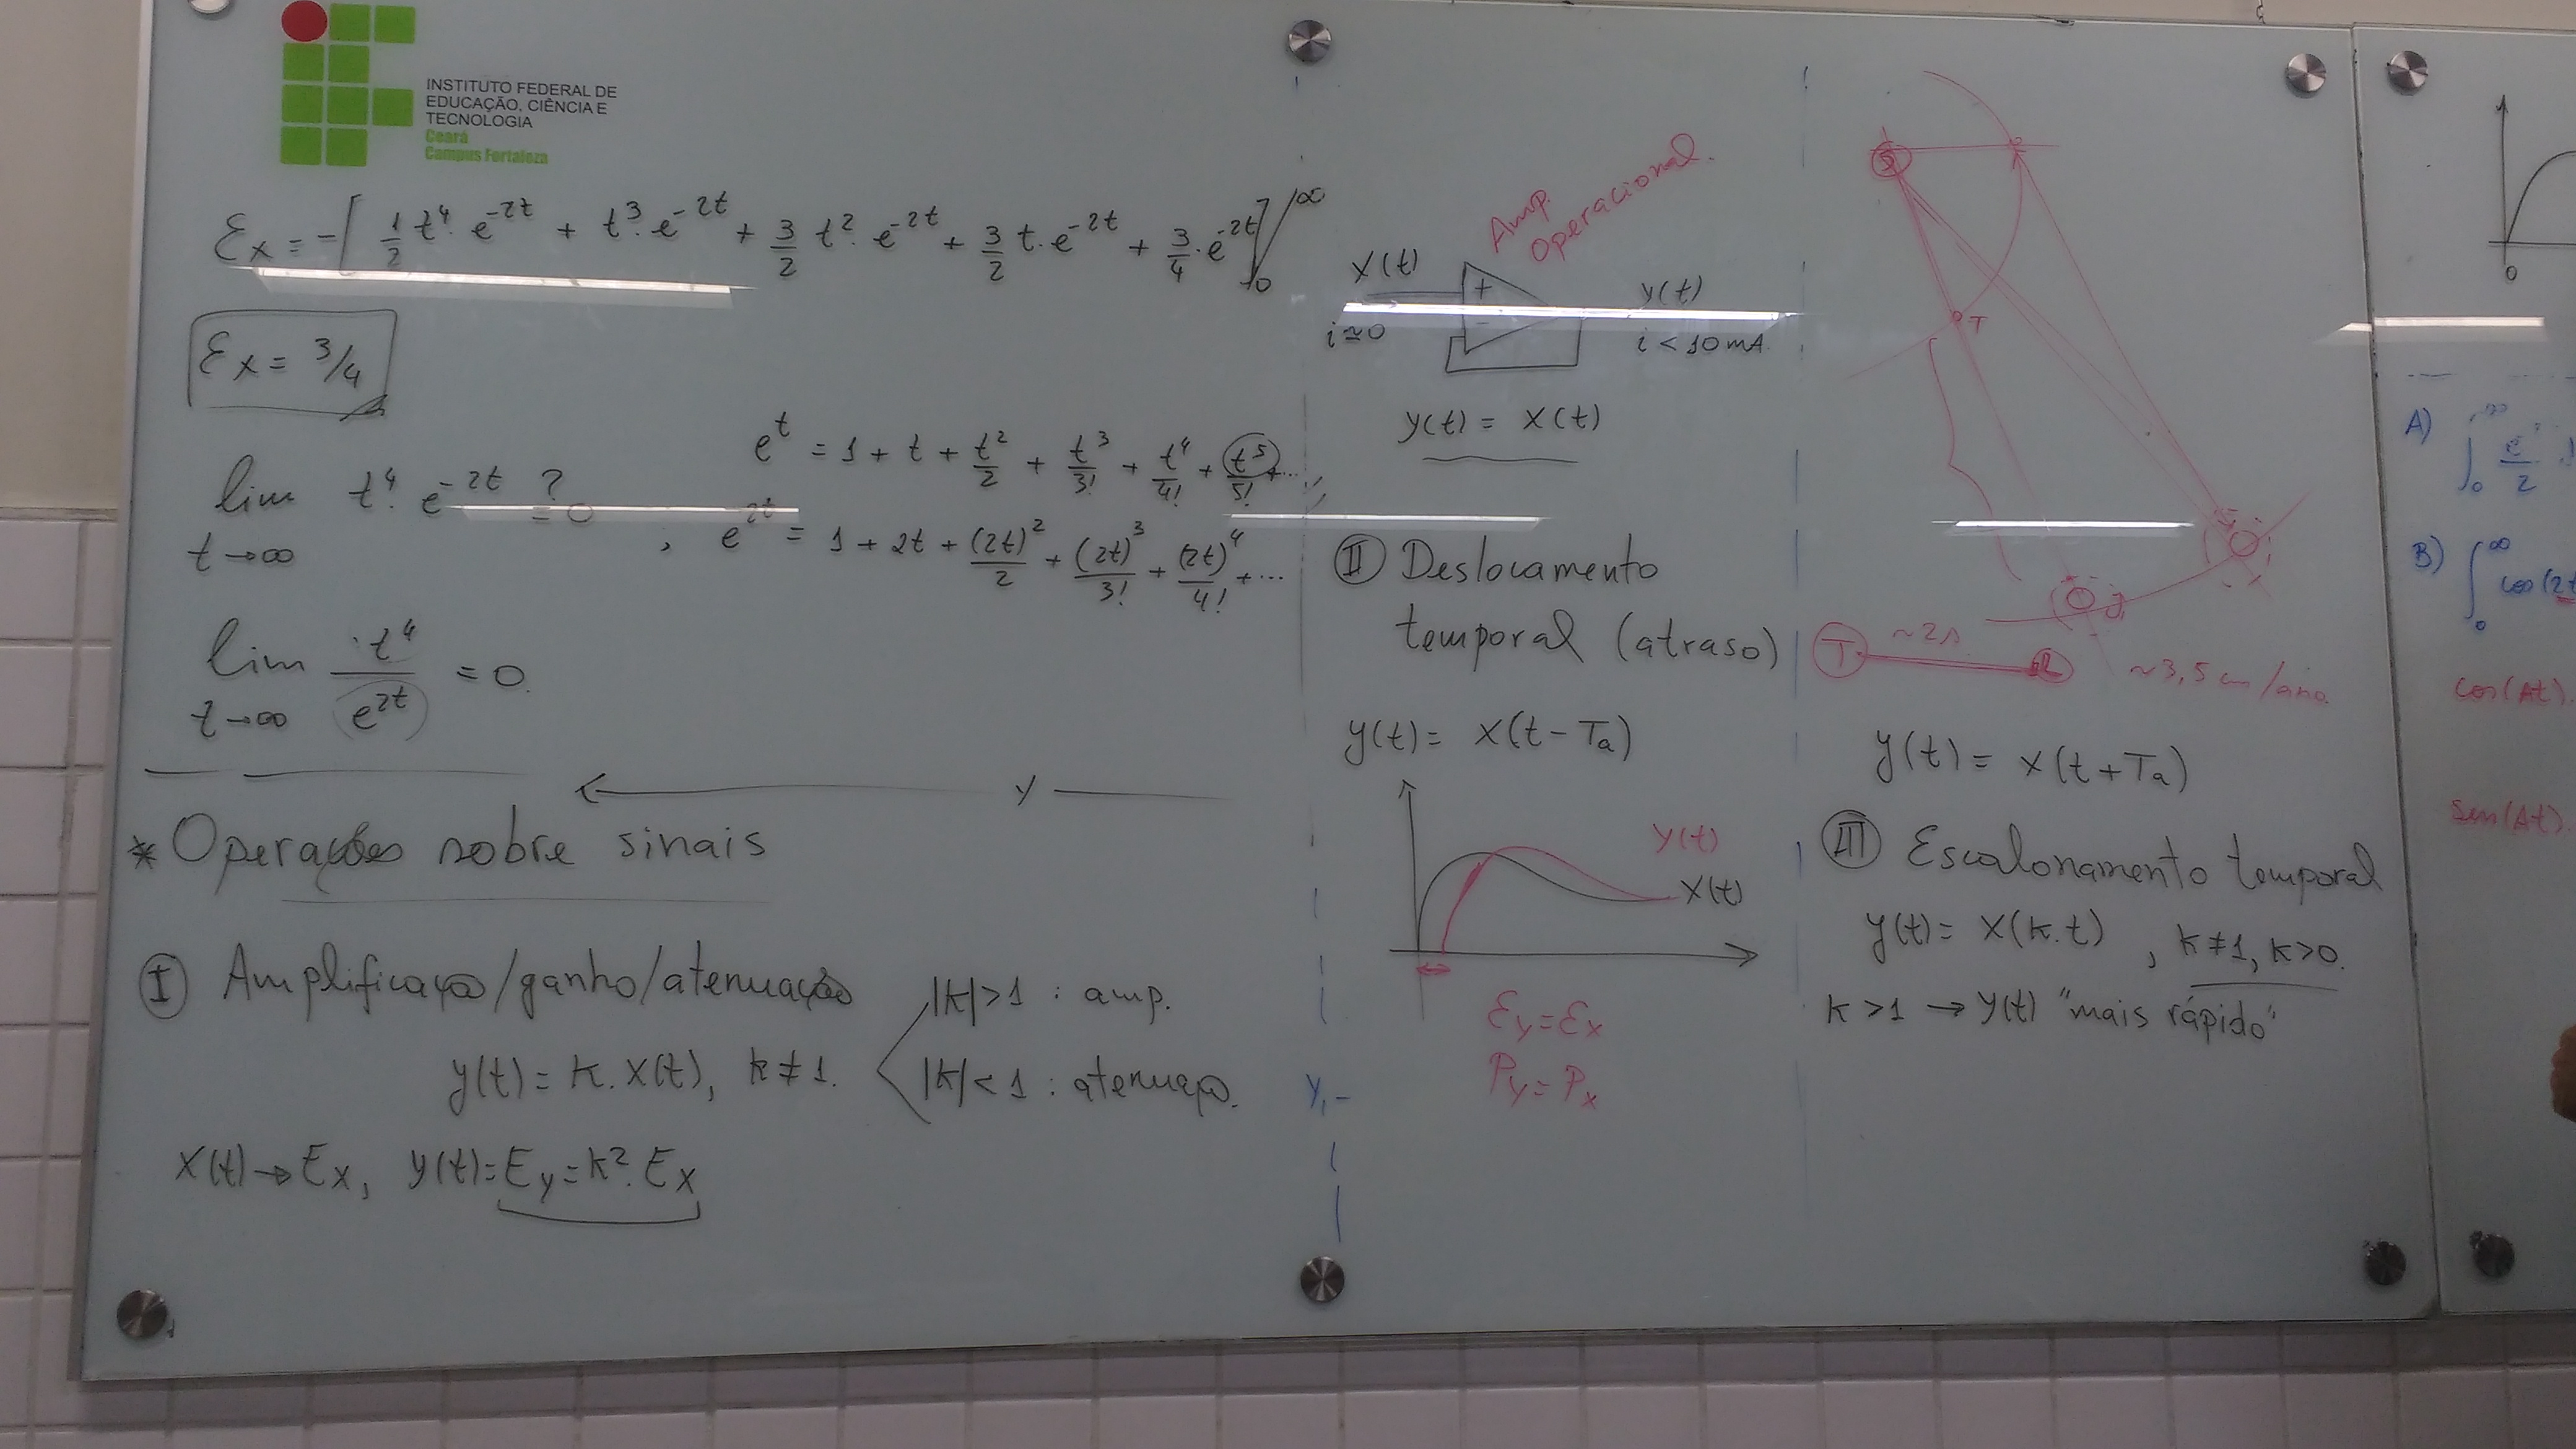 INSTITUTO FEDERAL DE
EDUCAÇÃO, CIÊNCIA E
TECNOLOGIA
Ceará
Campus Fortaleza
Ɛx = -[ 1/2 t⁴·e^-2t + t³·e^-2t + 3/2 t²·e^-2t + 3/2 t·e^-2t + 3/4·e^-2t ] ∞ 0
Ɛx = 3/4
lim t→∞ t⁴·e^-2t ?= 0
e^t = 1 + t + t²/2 + t³/3! + t⁴/4! + t⁵/5! + ...
, e^2t = 1 + 2t + (2t)²/2 + (2t)³/3! + (2t)⁴/4! + ...
lim t→∞ t⁴/e^2t = 0.
* Operações sobre sinais
I Amplificação/ganho/atenuação
y(t) = k.x(t), k≠1.
|k|>1 : amp.
|k|<1 : atenuação.
x(t)→Ex, y(t)=Ey=k².Ex
Amp.
Operacional.
x(t)
+
-
y(t)
i≃0
i < 10mA
y(t) = x(t)
II Deslocamento
temporal (atraso)
y(t) = x(t-Ta)
y(t)
x(t)
Ɛy=Ɛx
Py=Px
y,-
S
T
J
T ~2s L
~3,5 cm/ano.
y(t) = x(t+Ta)
III Escalonamento temporal
y(t) = x(k.t) , k≠1, k>0.
k>1 → y(t) "mais rápido"
0
A)
B) ∫ ∞ 0 cos(2t
cos(At)
sen(At)